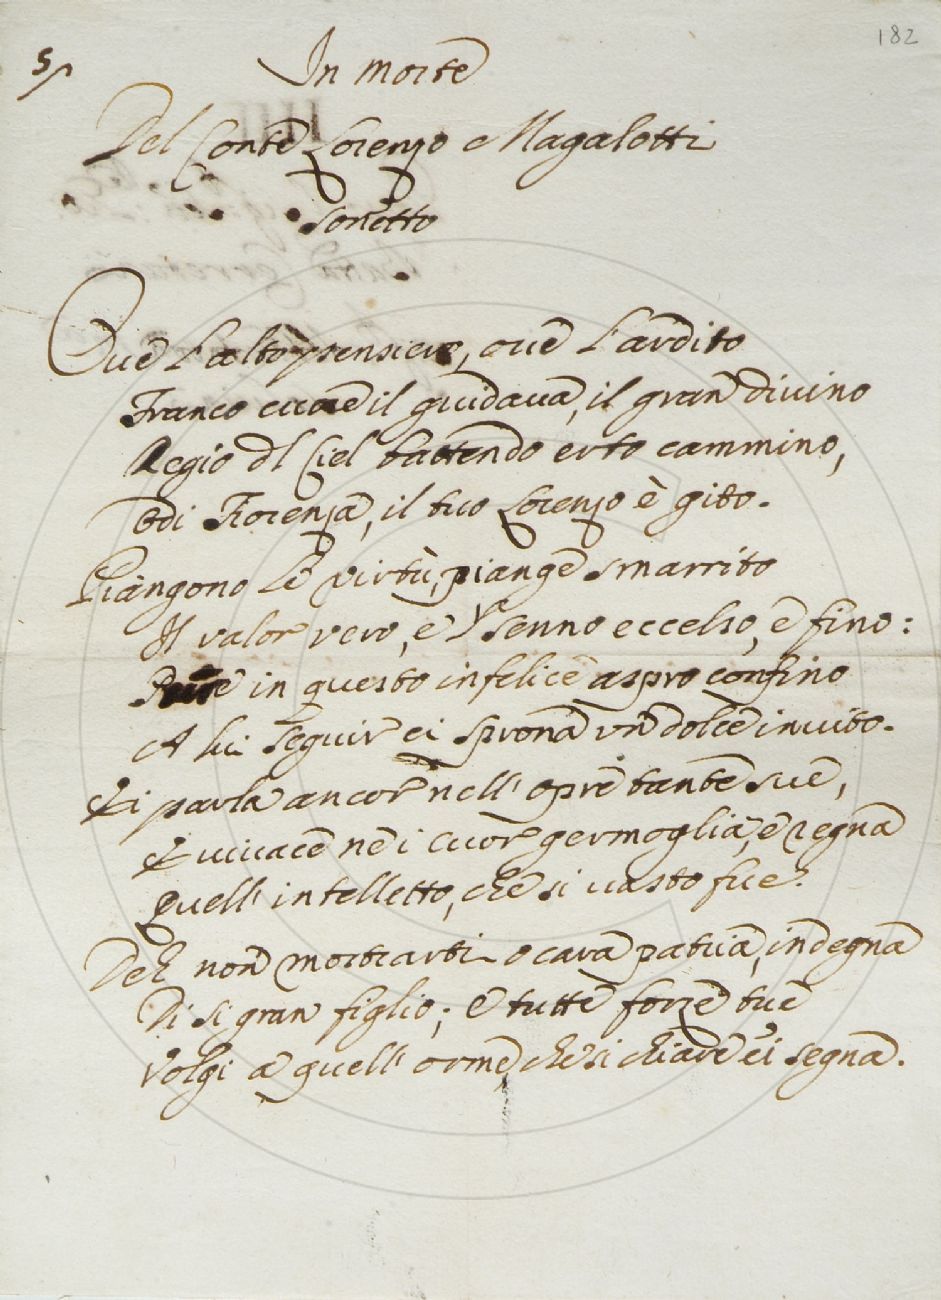 182
5
In morte
Del Conte Lorenzo Magalotti
Sonetto
Ove l'alto pensiero, ove l'ardito
Franco cuore il guidava, il gran divino
Regio del Ciel battendo erto cammino,
Odi Fiorenza, il tuo Lorenzo è gito.
Piangono le virtù, piange smarrito
Il valor vero, e 'l senno eccelso, e fino:
Pure in questo infelice aspro confino
A lui seguir ci sprona un dolce invito.
Ei parla ancor nell' opre tante sue,
E vivace ne i cuor germoglia, e regna
Quell' intelletto, che si vasto fue.
Deh non mostrarti o cara patria, indegna
Di si gran figlio; e tutte forze tue
Volgi a quell' orme, che si chiare ei segna.